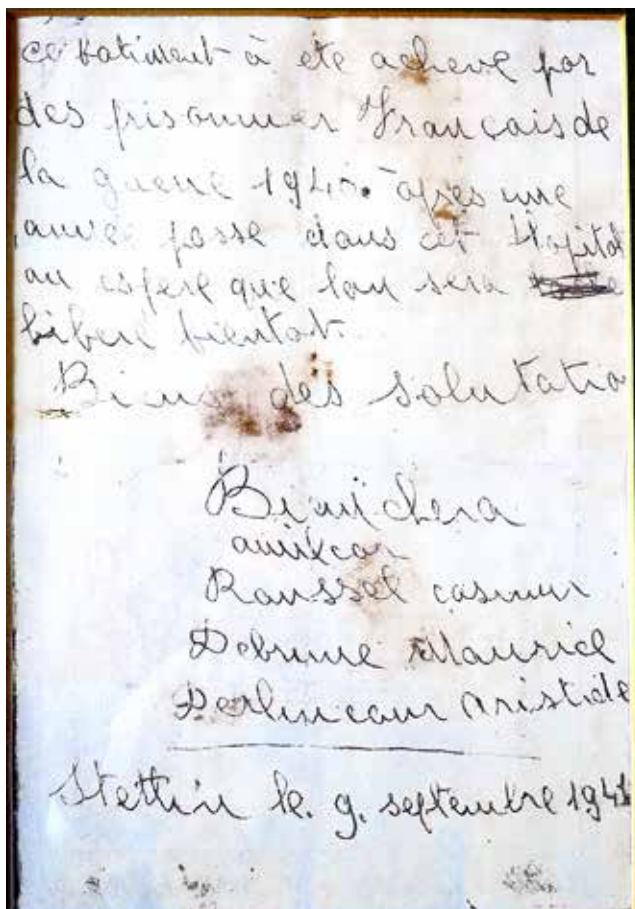 ce batiment à ete acheve par
des prisonnier Français de
la guerre 1940. après une
année passe dans cet Hopital
on espere que lon sera
libere bientot.
Bien des salutatio
Rousset casimir
Debrune Maurice
Derlincour Aristide
Stettin le. 9. septembre 1941